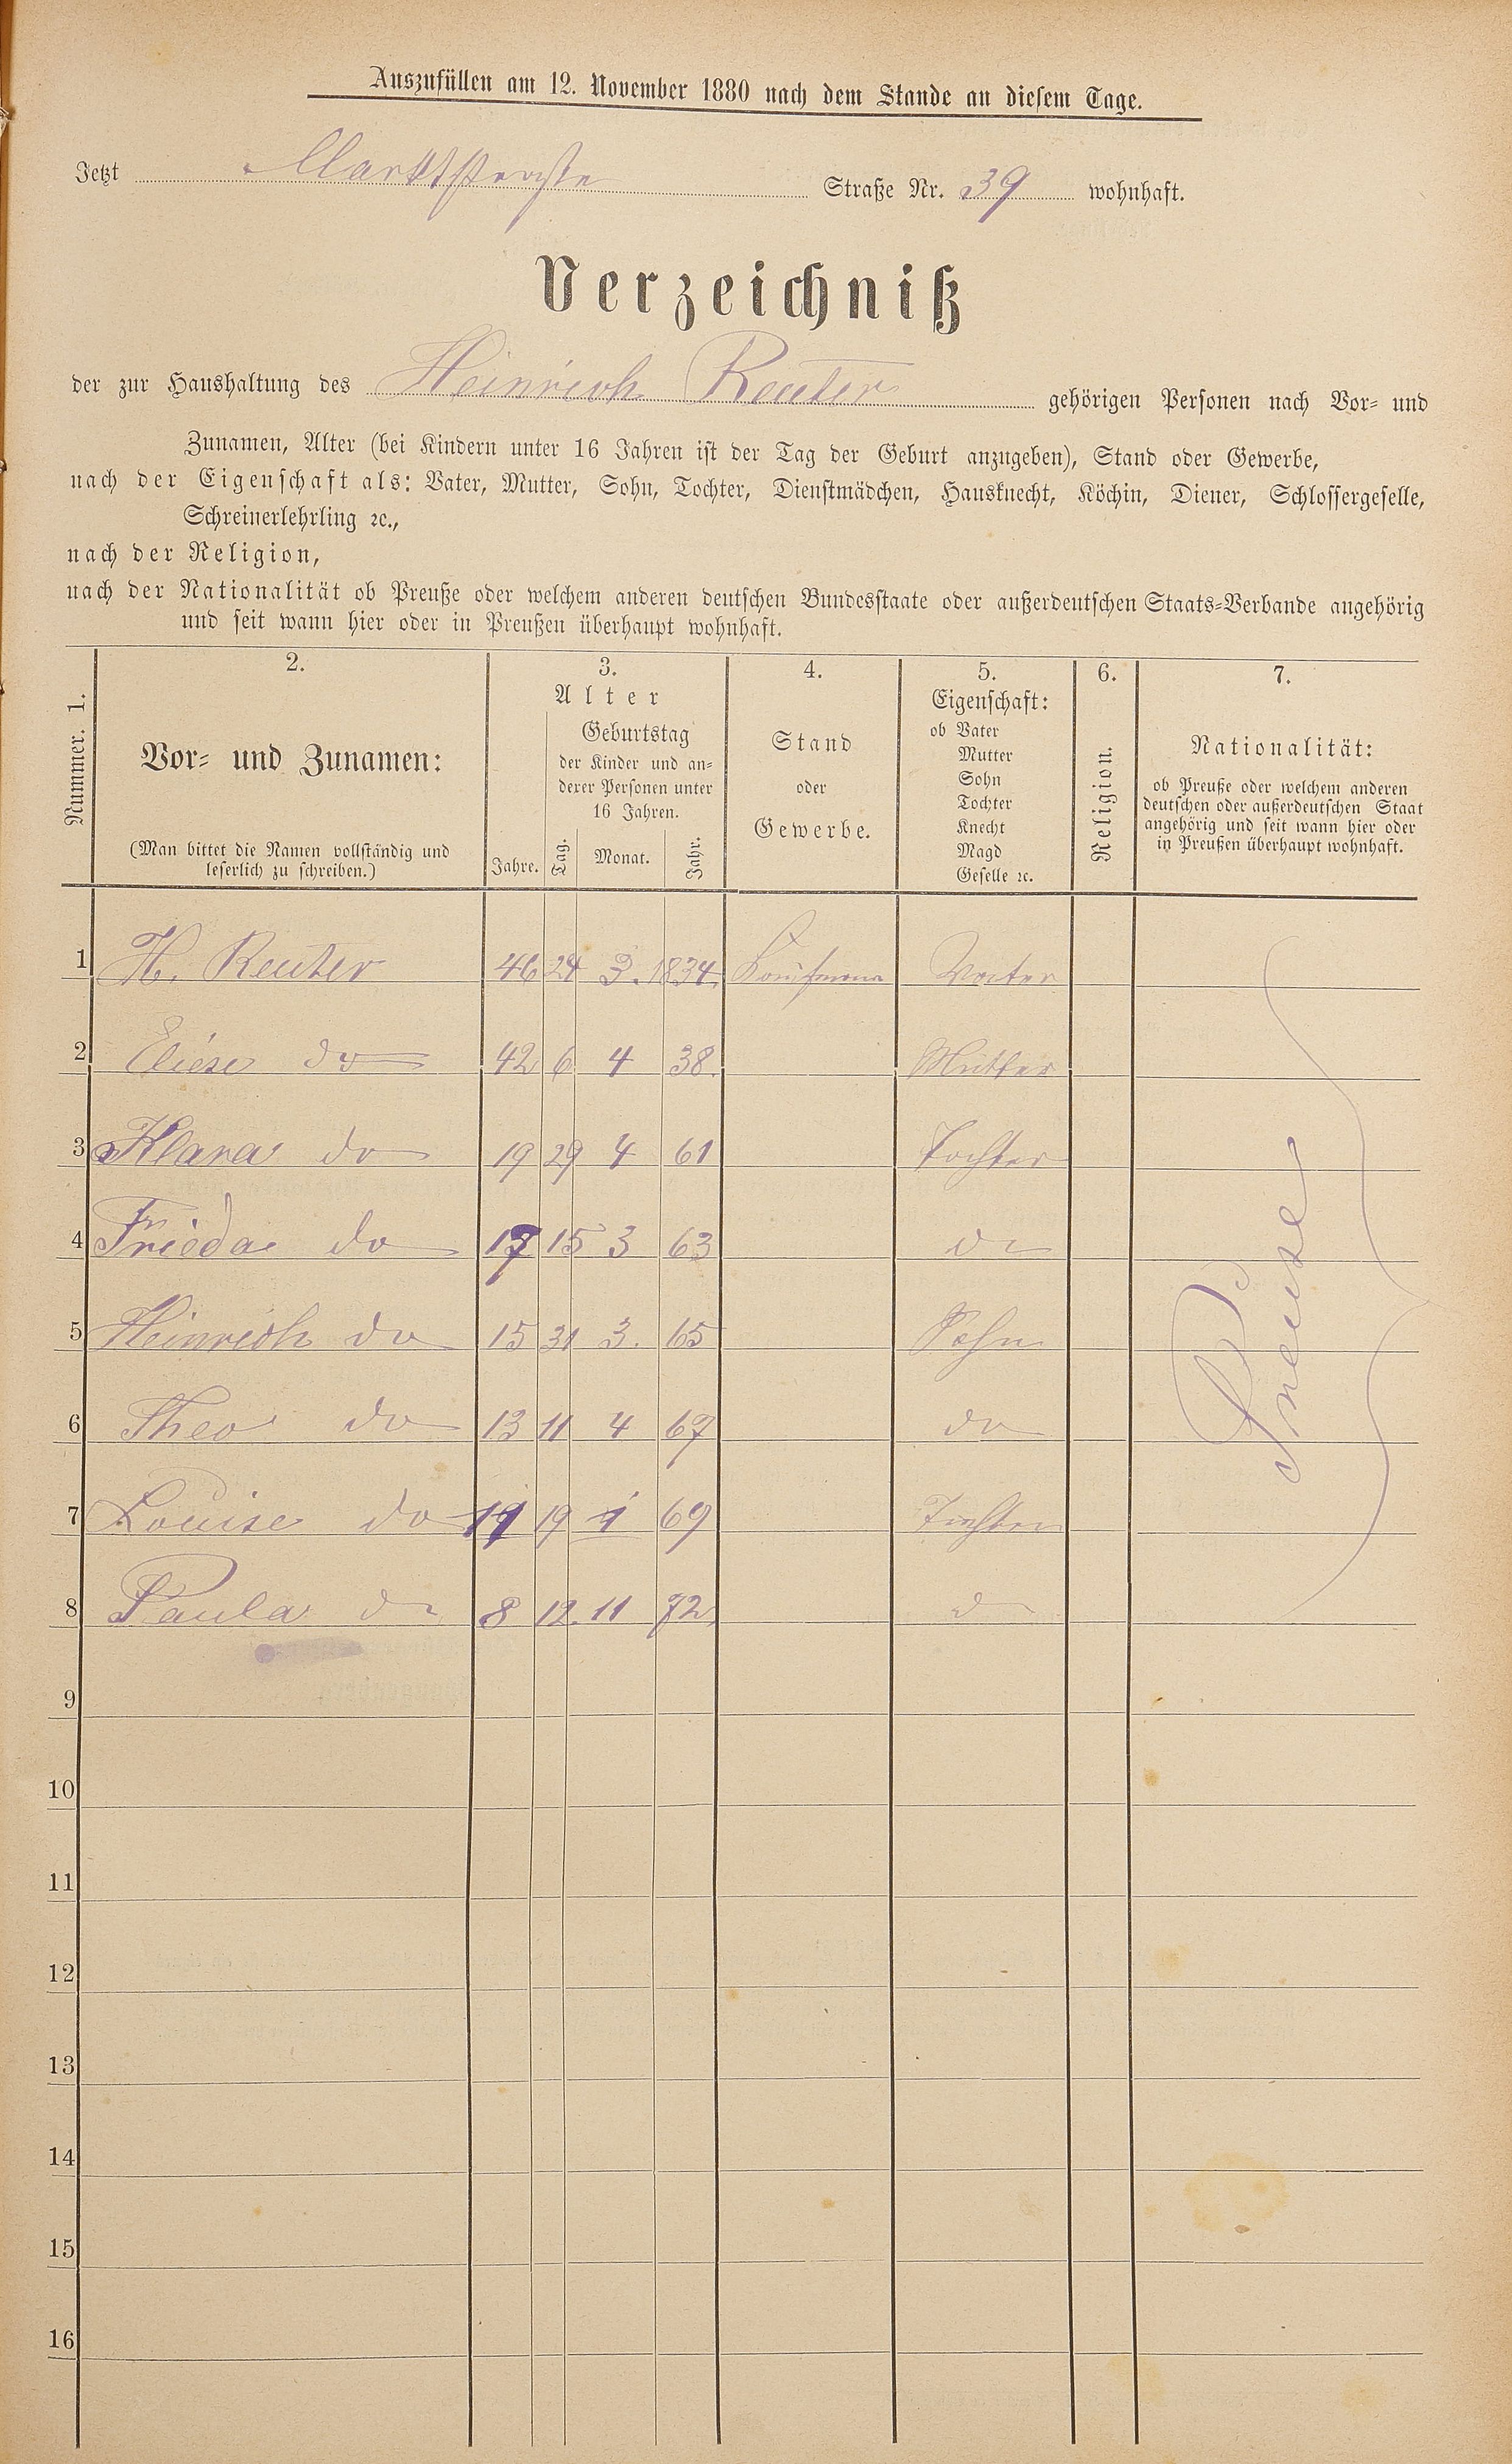 Auszufüllen am 12. November 1880 nach dem Stande an diesem Tage.
Jetzt Marktstraße Straße Nr. 39 wohnhaft.
Verzeichniß
der zur Haushaltung des Heinrich Reuter gehörigen Personen nach Vor- und
Zunamen, Alter (bei Kindern unter 16 Jahren ist der Tag der Geburt anzugeben), Stand oder Gewerbe,
nach der Eigenschaft als: Vater, Mutter, Sohn, Tochter, Dienstmädchen, Hausknecht, Köchin, Diener, Schlossergeselle,
Schreinerlehrling ꝛc.,
nach der Religion,
nach der Nationalität ob Preuße oder welchem anderen deutschen Bundesstaate oder außerdeutschen Staats-Verbande angehörig
und seit wann hier oder in Preußen überhaupt wohnhaft.
Nummer. 1.
2.
Vor- und Zunamen:
(Man bittet die Namen vollständig und
leserlich zu schreiben.)
3.
Alter
Jahre.
Geburtstag
der Kinder und an-
derer Personen unter
16 Jahren.
Tag. Monat. Jahr.
4.
Stand
oder
Gewerbe.
5.
Eigenschaft:
ob Vater
Mutter
Sohn
Tochter
Knecht
Magd
Geselle ꝛc.
6.
Religion.
7.
Nationalität:
ob Preuße oder welchem anderen
deutschen oder außerdeutschen Staat
angehörig und seit wann hier oder
in Preußen überhaupt wohnhaft.
1 H. Reuter 46 24 3. 1834 Kaufmann Vater
2 Eliese do 42 6 4 38. Mutter
3 Klara do 19 29 4 61 Tochter
4 Frieda do 17 15 3 63 do
5 Heinrich do 15 31 3. 65 Sohn
6 Theo do 13 11 4 67 do
7 Louise do 11 19 1 69 Tochter
8 Paula do 8 12. 11 72 do
Preuse
9
10
11
12
13
14
15
16